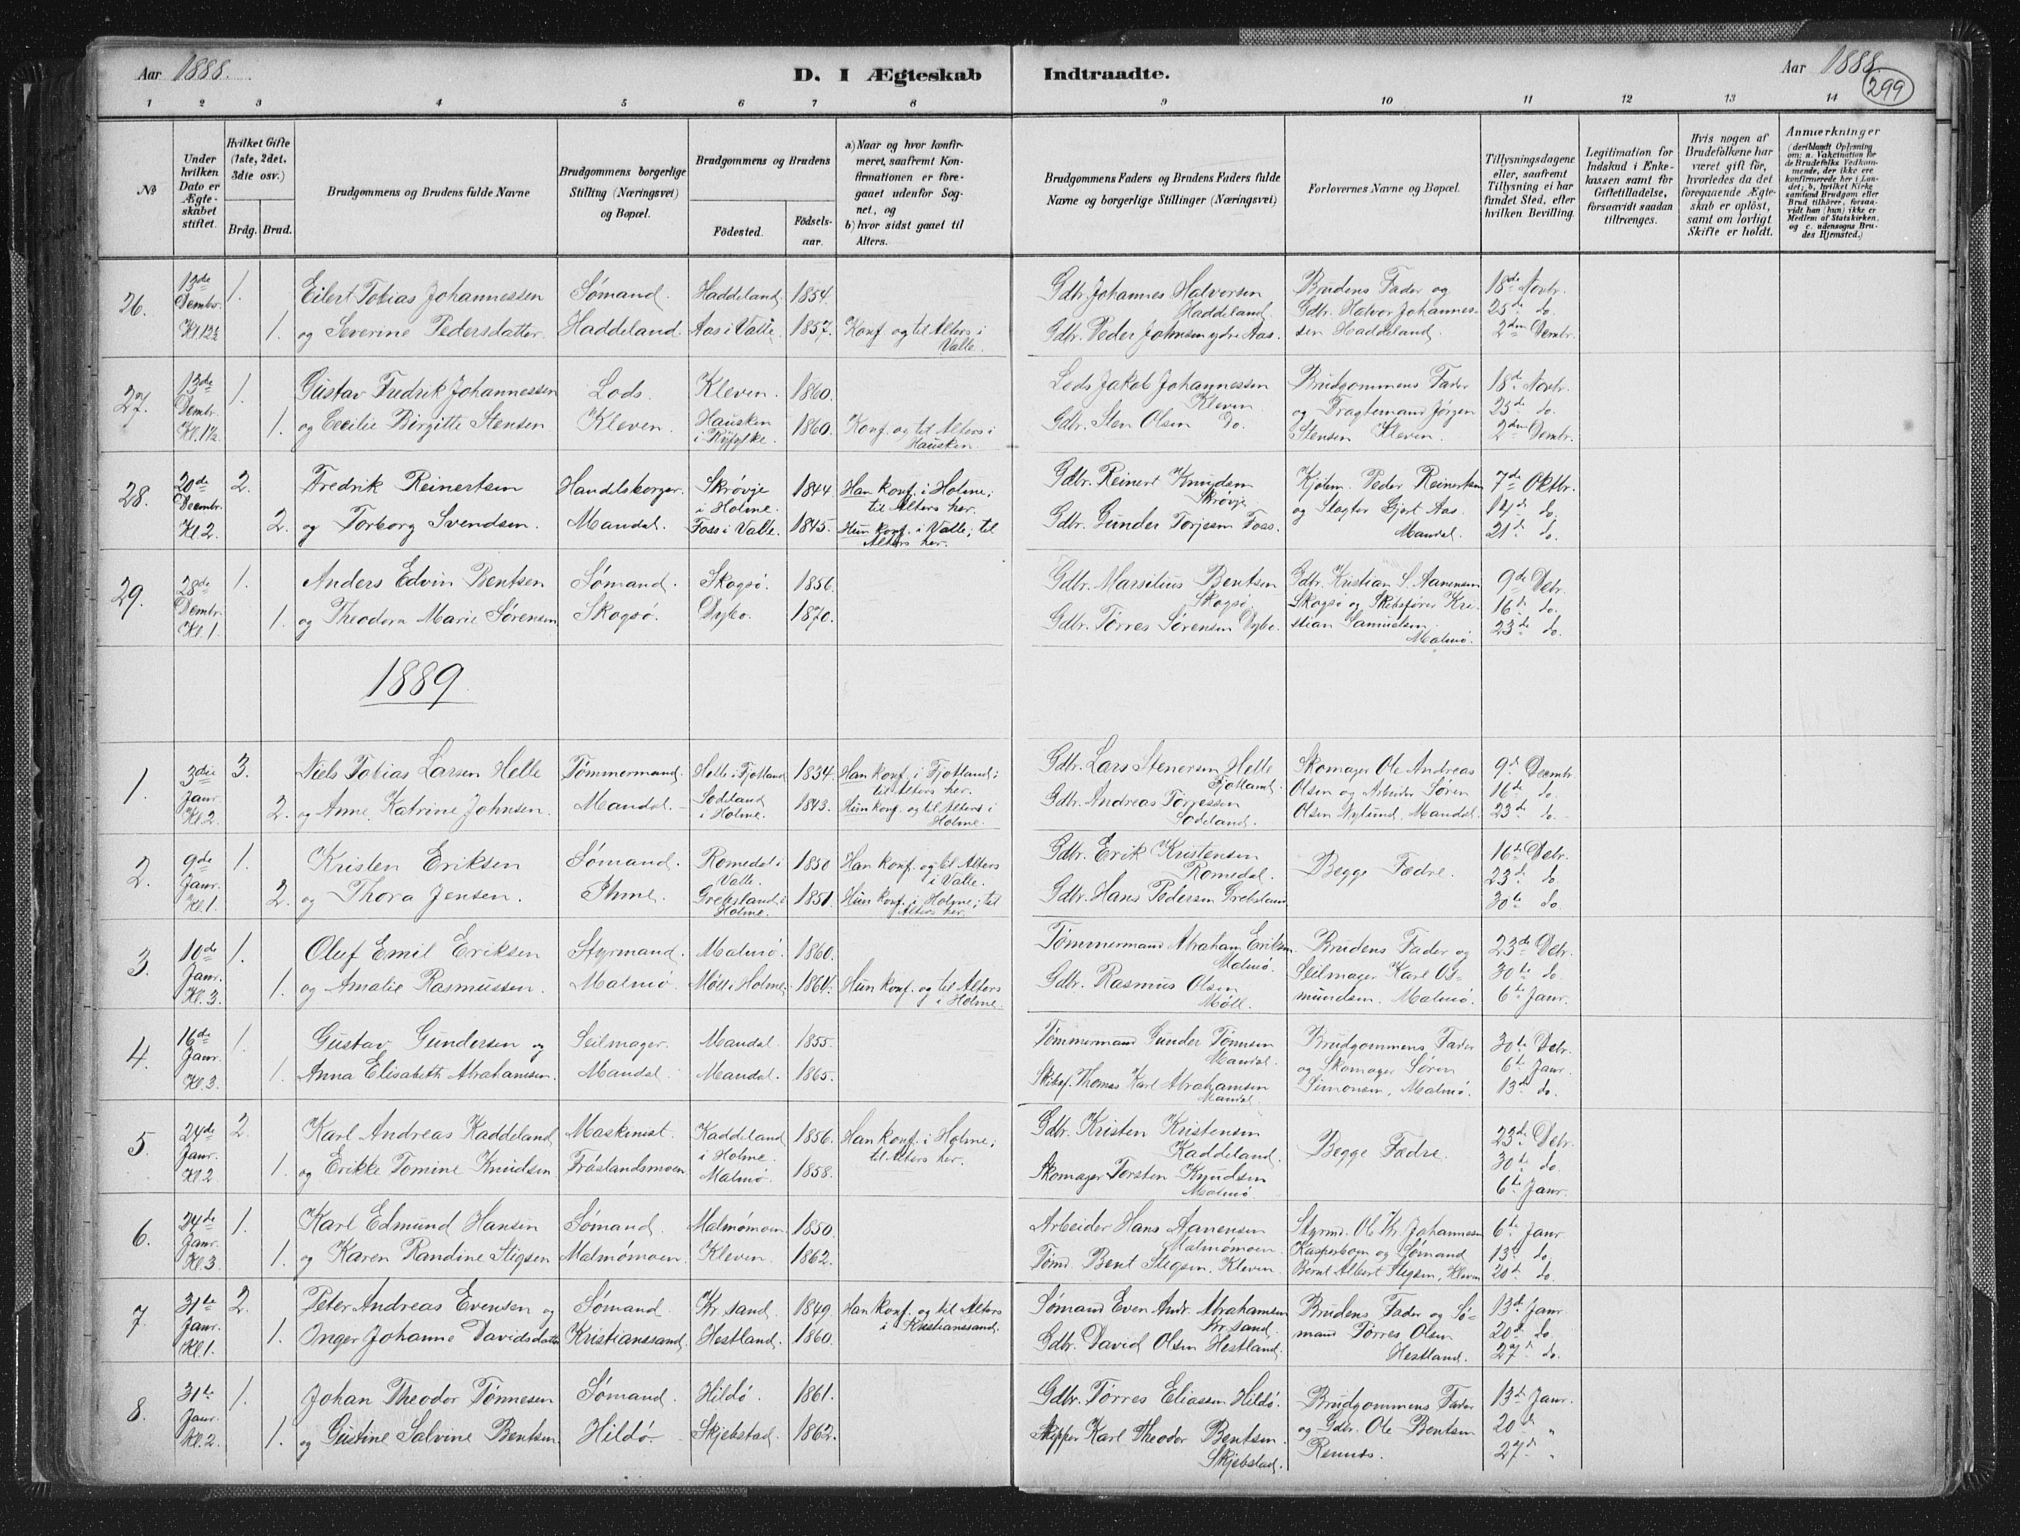 Aar 1888. D. I Ægteskab Indtraadte. Aar 1888.
299
1 2 3 4 5 6 7 8 9 10 11 12 13 14
№
Under hvilken Dato er Ægteskabet stiftet.
Hvilket Gifte (1ste, 2det, 3die osv.)
Brdg. Brud.
Brudgommens og Brudens fulde Navne
Brudgommens borgerlige Stilling (Næringsvei) og Bopæl.
Brudgommens og Brudens
Fødested. Fødselsaar.
a) Naar og hvor konfirmeret, saafremt Konfirmationen er foregaaet udenfor Sognet, og
b) hvor sidst gaaet til Alters.
Brudgommens Faders og Brudens Faders fulde Navne og borgerlige Stillinger (Næringsvei)
Forlovernes Navne og Bopæl.
Tillysningsdagene eller, saafremt Tillysning ei har fundet Sted, efter hvilken Bevilling.
Legitimation for Indskud i Enkekassen samt for Giftetilladelse, forsaavidt saadan tiltrænges.
Hvis nogen af Brudefolkene har været gift før, hvorledes da det foregaaende Ægteskab er opløst, samt om lovligt Skifte er holdt.
Anmærkninger (deriblandt Oplysning om: a. Vakcination for de Brudefolks Vedkommende, der ikke ere konfirmerede her i Landet; b, hvilket Kirkesamfund Brudgom eller Brud tilhører, forsaavidt han (hun) ikke er Medlem af Statskirken, og c. udensogns Brudes Hjemsted.)
26. 13de Dembr. Kl. 12½ 1. Eilert Tobias Johannessen Sømand. Haddeland. 1854. Gdbr. Johannes Halvorsen Haddeland. Brudens Fader og 18de Novbr.
1. og Severine Pedersdatter. Haddeland. Aas i Valle. 1857. Konf. og til Alters i Valle. Gdbr. Peder Johnsen ydre Aas. Gdbr. Halvor Johannessen Haddeland. 25de do. 2den Dembr.
27. 13de Dembr. Kl. 1½. 1. Gustav Fredrik Johannessen Lods. Kleven. 1860. Lods Jakob Johannessen Kleven. Brudgommens Fader 18de Novbr.
1. og Cecilie Birgitte Stensen Kleven. Hausken i Ryfylke. 1860. Konf. og til Alters i Hausken. Gdbr. Sten Olsen Do. og Fragtemand Jørgen Stensen Kleven. 25de do. 2den Dembr.
28. 20de Decmbr. Kl. 2. 2. Fredrik Reinertsen Handelsborger. Skrøvje i Holme. 1844 Han konf. i Holme; til Alters her. Gdbr. Reinert Knudsen Skrøvje Kjøbm. Peder Reinertsen 7de Oktbr.
2. og Torborg Svendsen. Mandal. Foss i Valle. 1845. Hun konf. i Valle; til Alters her. Gdbr. Gunder Torjesen Foss. og Slagter Gjert Aas. Mandal. 14de do. 21de do.
29. 28de Dembr. Kl. 1. 1. Anders Edvin Bentsen Sømand. Skogsø. 1856. Gdbr. Marsilius Bentsen Skogsø Gdbr. Kristian S. Aanensen 9de Debr.
1. og Theodora Marie Sørensen Skogsø. Dybo. 1870. Gdbr. Tørres Sørensen Dybo. Skogsø og Skibsfører Kristian Samuelsen. Malmø. 16de do. 23de do.
1889
1. 3die Janr. Kl. 2. 3. Niels Tobias Larsen Helle Tømmermand. Helle i Fjotland 1834 Han konf. i Fjotland; til Alters her. Gdbr. Lars Stenersen Helle Fjotland. Skomager Ole Andreas 9de Decmbr
2. og Anne Katrine Johnsen. Mandal. Sodeland i Holme. 1843. Hun konf. og til Alters i Holme. Gdbr. Andreas Torjessen Sodeland. Olsen og Arbeider Søren Olsen Nylund, Mandal. 16de do. 23de do.
2. 9de Janr. Kl. 1 1. Kristen Eriksen Sømand. Romedal i Valle. 1850 Han konf. og til Alters i Valle. Gdbr. Erik Kristensen Romedal. Begge Fædre. 16de Debr. 23de do
2. og Thora Jensen. Ihme. Grebstand i Holme. 1851. Hun konf. i Holme; til Alters her. Gdbr. Hans Pedersen Grebstand 30te do
3. 10de Janr. Kl. 3. 1. Oluf Emil Eriksen Styrmand. Malmø. 1860. Tømmermand Abraham Eriksen Malmø. Brudens Fader og 23de Debr.
1. og Amalie Rasmussen. Malmø. Møll i Holme. 1864. Hun konf. og til Alters i Holme. Gdbr. Rasmus Olsen Møll. Seilmager Karl Osmundsen, Malmø. 30te do. 6te Janr.
4. 16de Janr. Kl. 3. 1. Gustav Gundersen og Seilmager. Mandal. 1855. Tømmermand Gunder Tønnesen Mandal. Brudgommens Fader 30te Debr.
1. Anna Elisabeth Abrahamsen. Mandal. Mandal. 1865. Skibsf. Thomas Karl Abrahamsen Mandal. og Skomager Søren Simonsen, Malmø. 6te Janr. 13de do.
5. 24de Janr. Kl. 2 2. Karl Andreas Kaddeland Maskinist. Kaddeland i Holme. 1856. Han konf. i Holme; til Alters her. Gdbr. Kristen Kristensen Kaddeland. Begge Fædre. 23de Debr. 30te do.
1. og Erikke Tomine Knudsen Frøslandsmoen Malmø. 1858. Skomager Torsten Knudsen Malmø 6te Janr.
6. 24de Janr. Kl. 3 1. Karl Edmund Hansen Sømand. Malmømoen. 1850 Arbeider Hans Aanensen Malmømoen. Styrmd. Ole Kr. Johannessen 6te Janr
1. og Karen Randine Stigsen Malmømoen. Kleven. 1862. Tømd. Bent Stigsen, Kleven. Kaspersbogn og Sømand Bernt Albert Stigsen, Kleven 13de do. 20de do.
7. 31te Janr. Kl. 1. 2. Peter Andreas Evensen og Sømand. Kr.sand. 1849 Han konf. og til Alters i Kristianssand. Sømand Even Andr. Abrahamsen Kr.sand. Brudens Fader og Sømand 13de Janr.
1. Inger Johanne Davidsdatter Kristianssand. Hestland. 1860. Gdbr. David Olsen Hestland. Tørres Olsen Hestland. 20de do. 27de do.
8. 31te Janr. Kl. 2. 1. Johan Theodor Tønnesen Sømand. Hildø. 1861. Gdbr. Tørres Eliassen Hildø. Brudgommens Fader 13de Janr.
1. og Gustine Salvine Bentsen. Hildø. Skjebstad. 1862. Skipper Karl Theodor Bentsen. Skjebstad. og Gdbr. Ole Bentsen 20de " 27de "